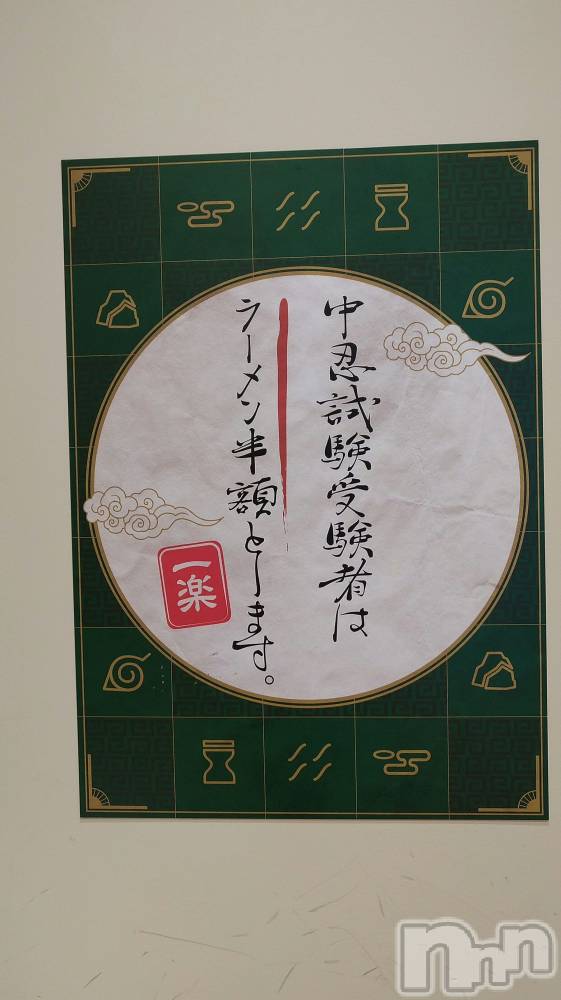 中忍試験受験者は
ラーメン半額とします。
一楽
nnn